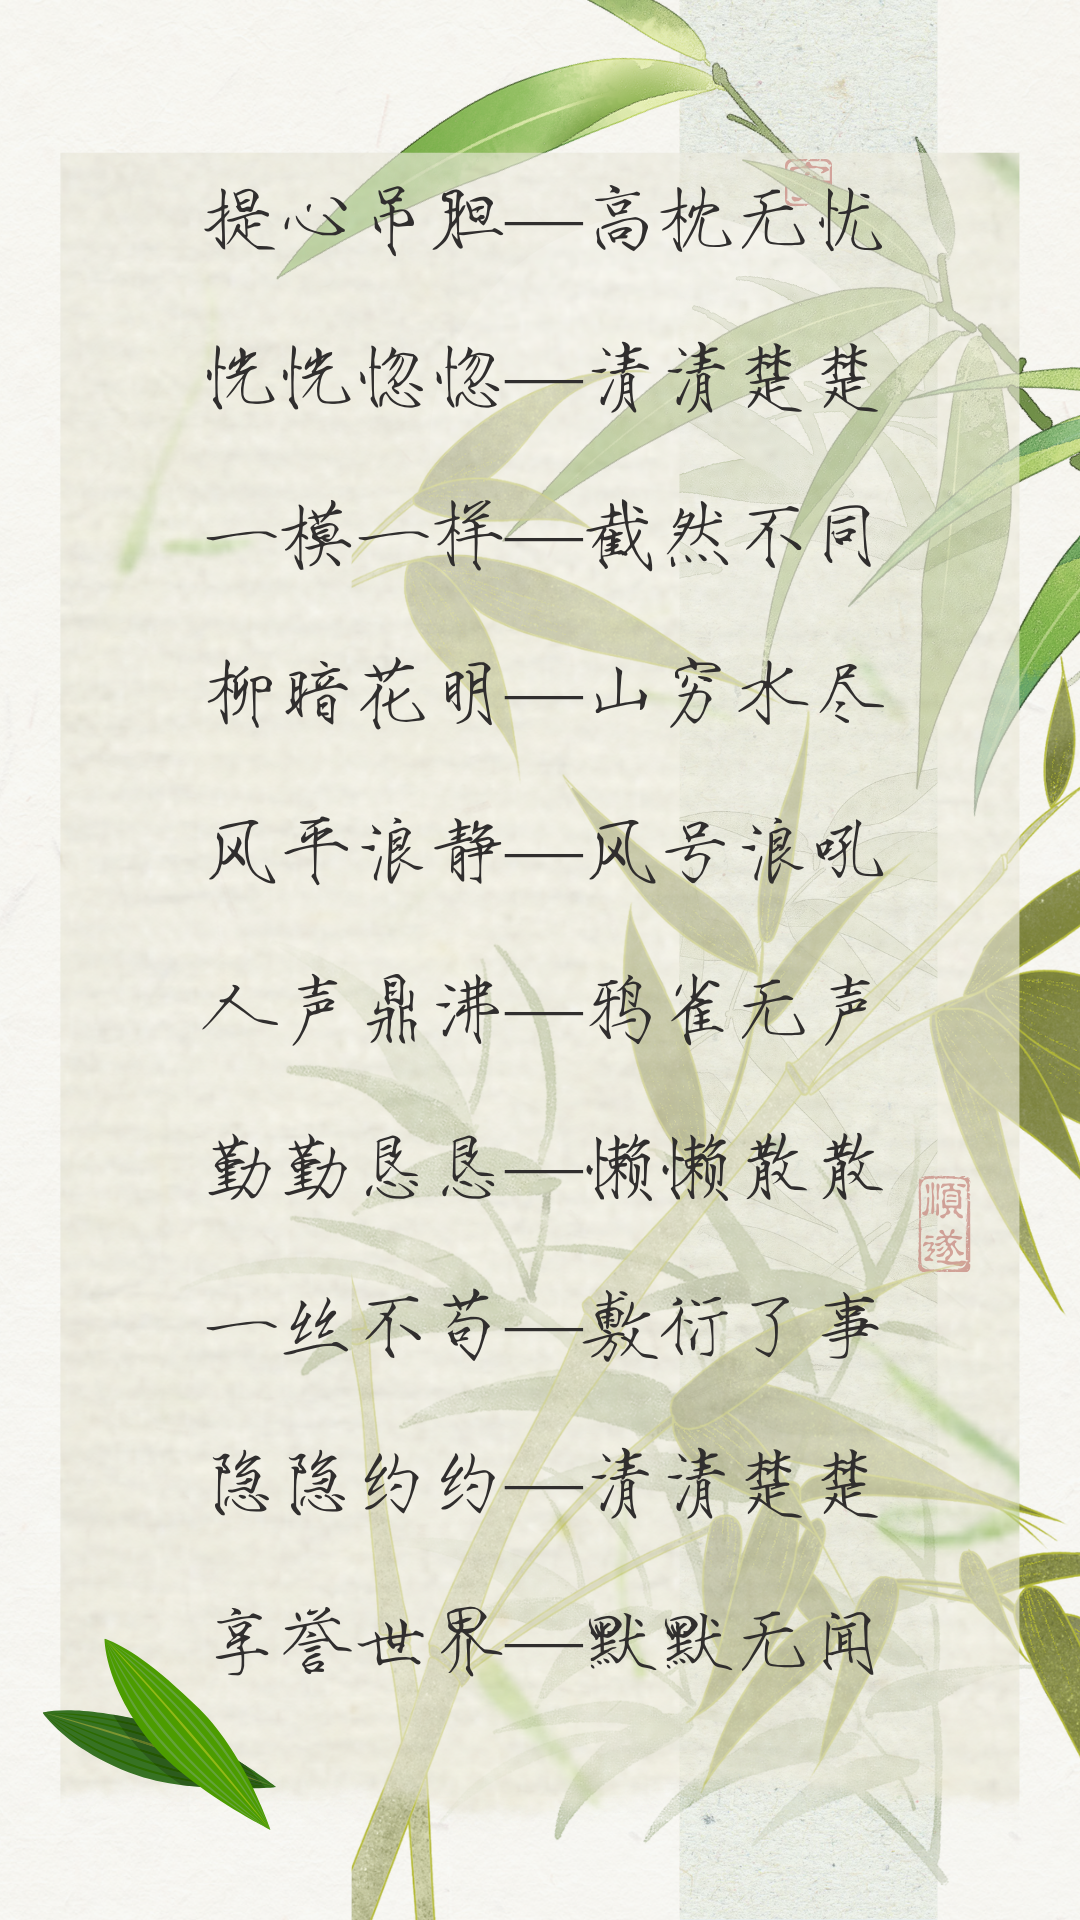 提心吊胆—高枕无忧
恍恍惚惚—清清楚楚
一模一样—截然不同
柳暗花明—山穷水尽
风平浪静—风号浪吼
人声鼎沸—鸦雀无声
勤勤恳恳—懒懒散散
順遂
一丝不苟—敷衍了事
隐隐约约—清清楚楚
享誉世界—默默无闻